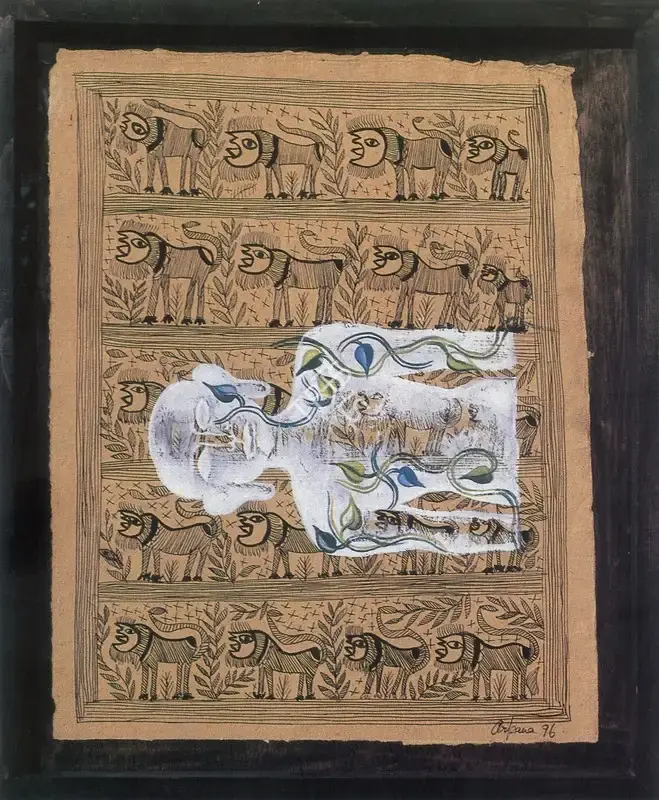 Arpana 96